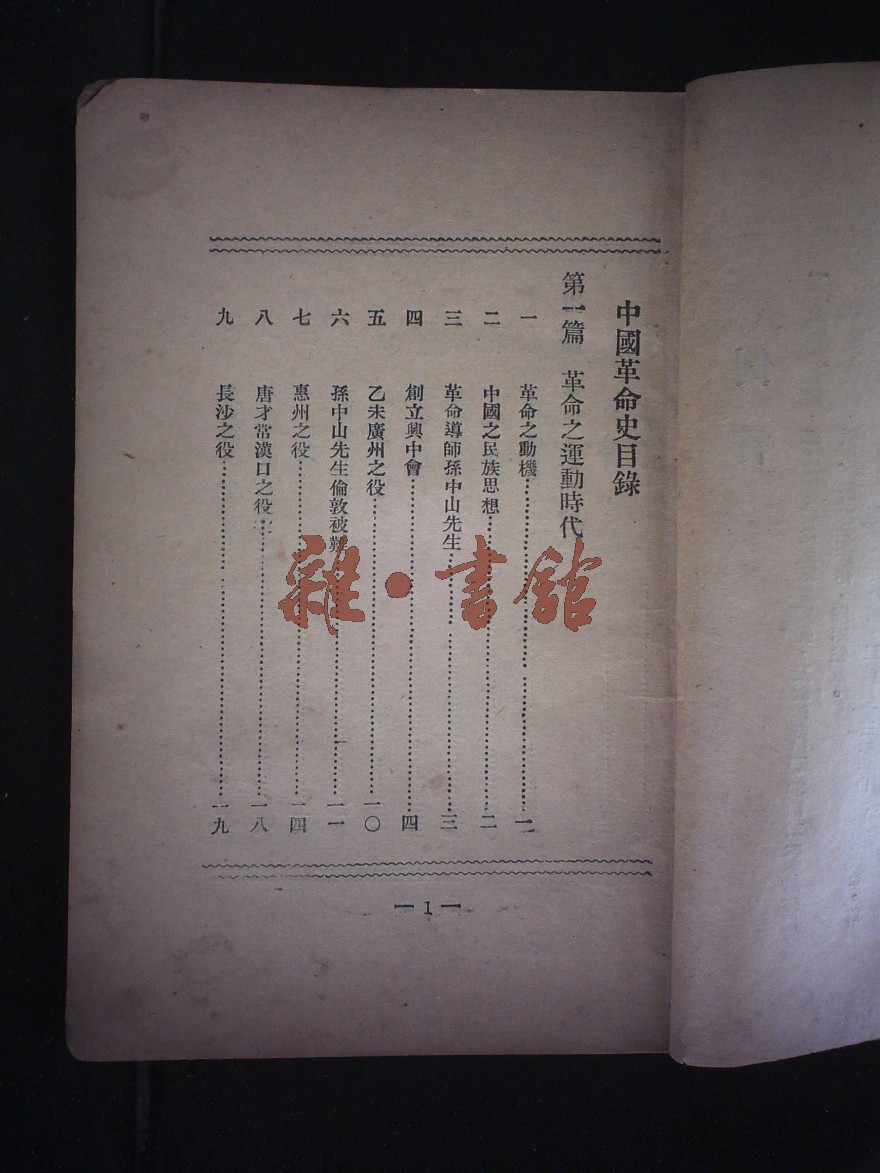 中國革命史目錄
第一篇 革命之運動時代
一 革命之動機……一
二 中國之民族思想……二
三 革命導師孫中山先生……三
四 創立興中會……四
五 乙未廣州之役……一〇
六 孫中山先生倫敦被難……一一
七 惠州之役……一四
八 唐才常漢口之役……一八
九 長沙之役……一九
— 1 —
雜·書館